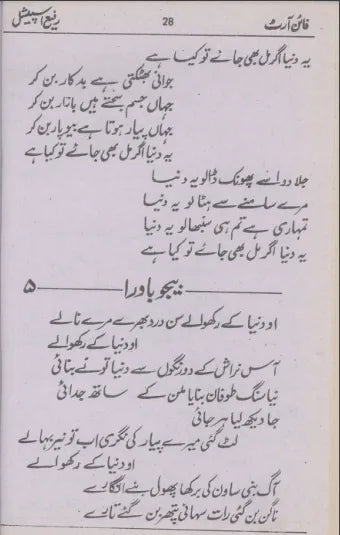 فائن آرٹ 28 رفیع اسپیشل
یہ دنیا اگر مل بھی جائے تو کیا ہے
جوانی بھٹکتی ہے بدکار بن کر
جہاں جسم سجتے ہیں بازار بن کر
یہاں پیار ہوتا ہے بیوپار بن کر
یہ دنیا اگر مل بھی جائے تو کیا ہے
جلا دو اسے پھونک ڈالو یہ دنیا
مرے سامنے سے ہٹا لو یہ دنیا
تمہاری ہے تم ہی سنبھالو یہ دنیا
یہ دنیا اگر مل بھی جائے تو کیا ہے
بیجو باورا ۵
او دنیا کے رکھوالے سن درد بھرے مرے نالے
او دنیا کے رکھوالے
آس نراش کے دو رنگوں سے دنیا تو نے بنائی
نیا سنگ طوفان بنایا ملن کے ساتھ جدائی
جا دیکھ لیا ہرجائی
لٹ گئی میرے پیار کی نگری اب تو نیر بہالے
او دنیا کے رکھوالے
آگ بنی ساون کی برکھا پھول بنے انگارے
ناگن بن گئی رات سہانی پتھر بن گئے تارے